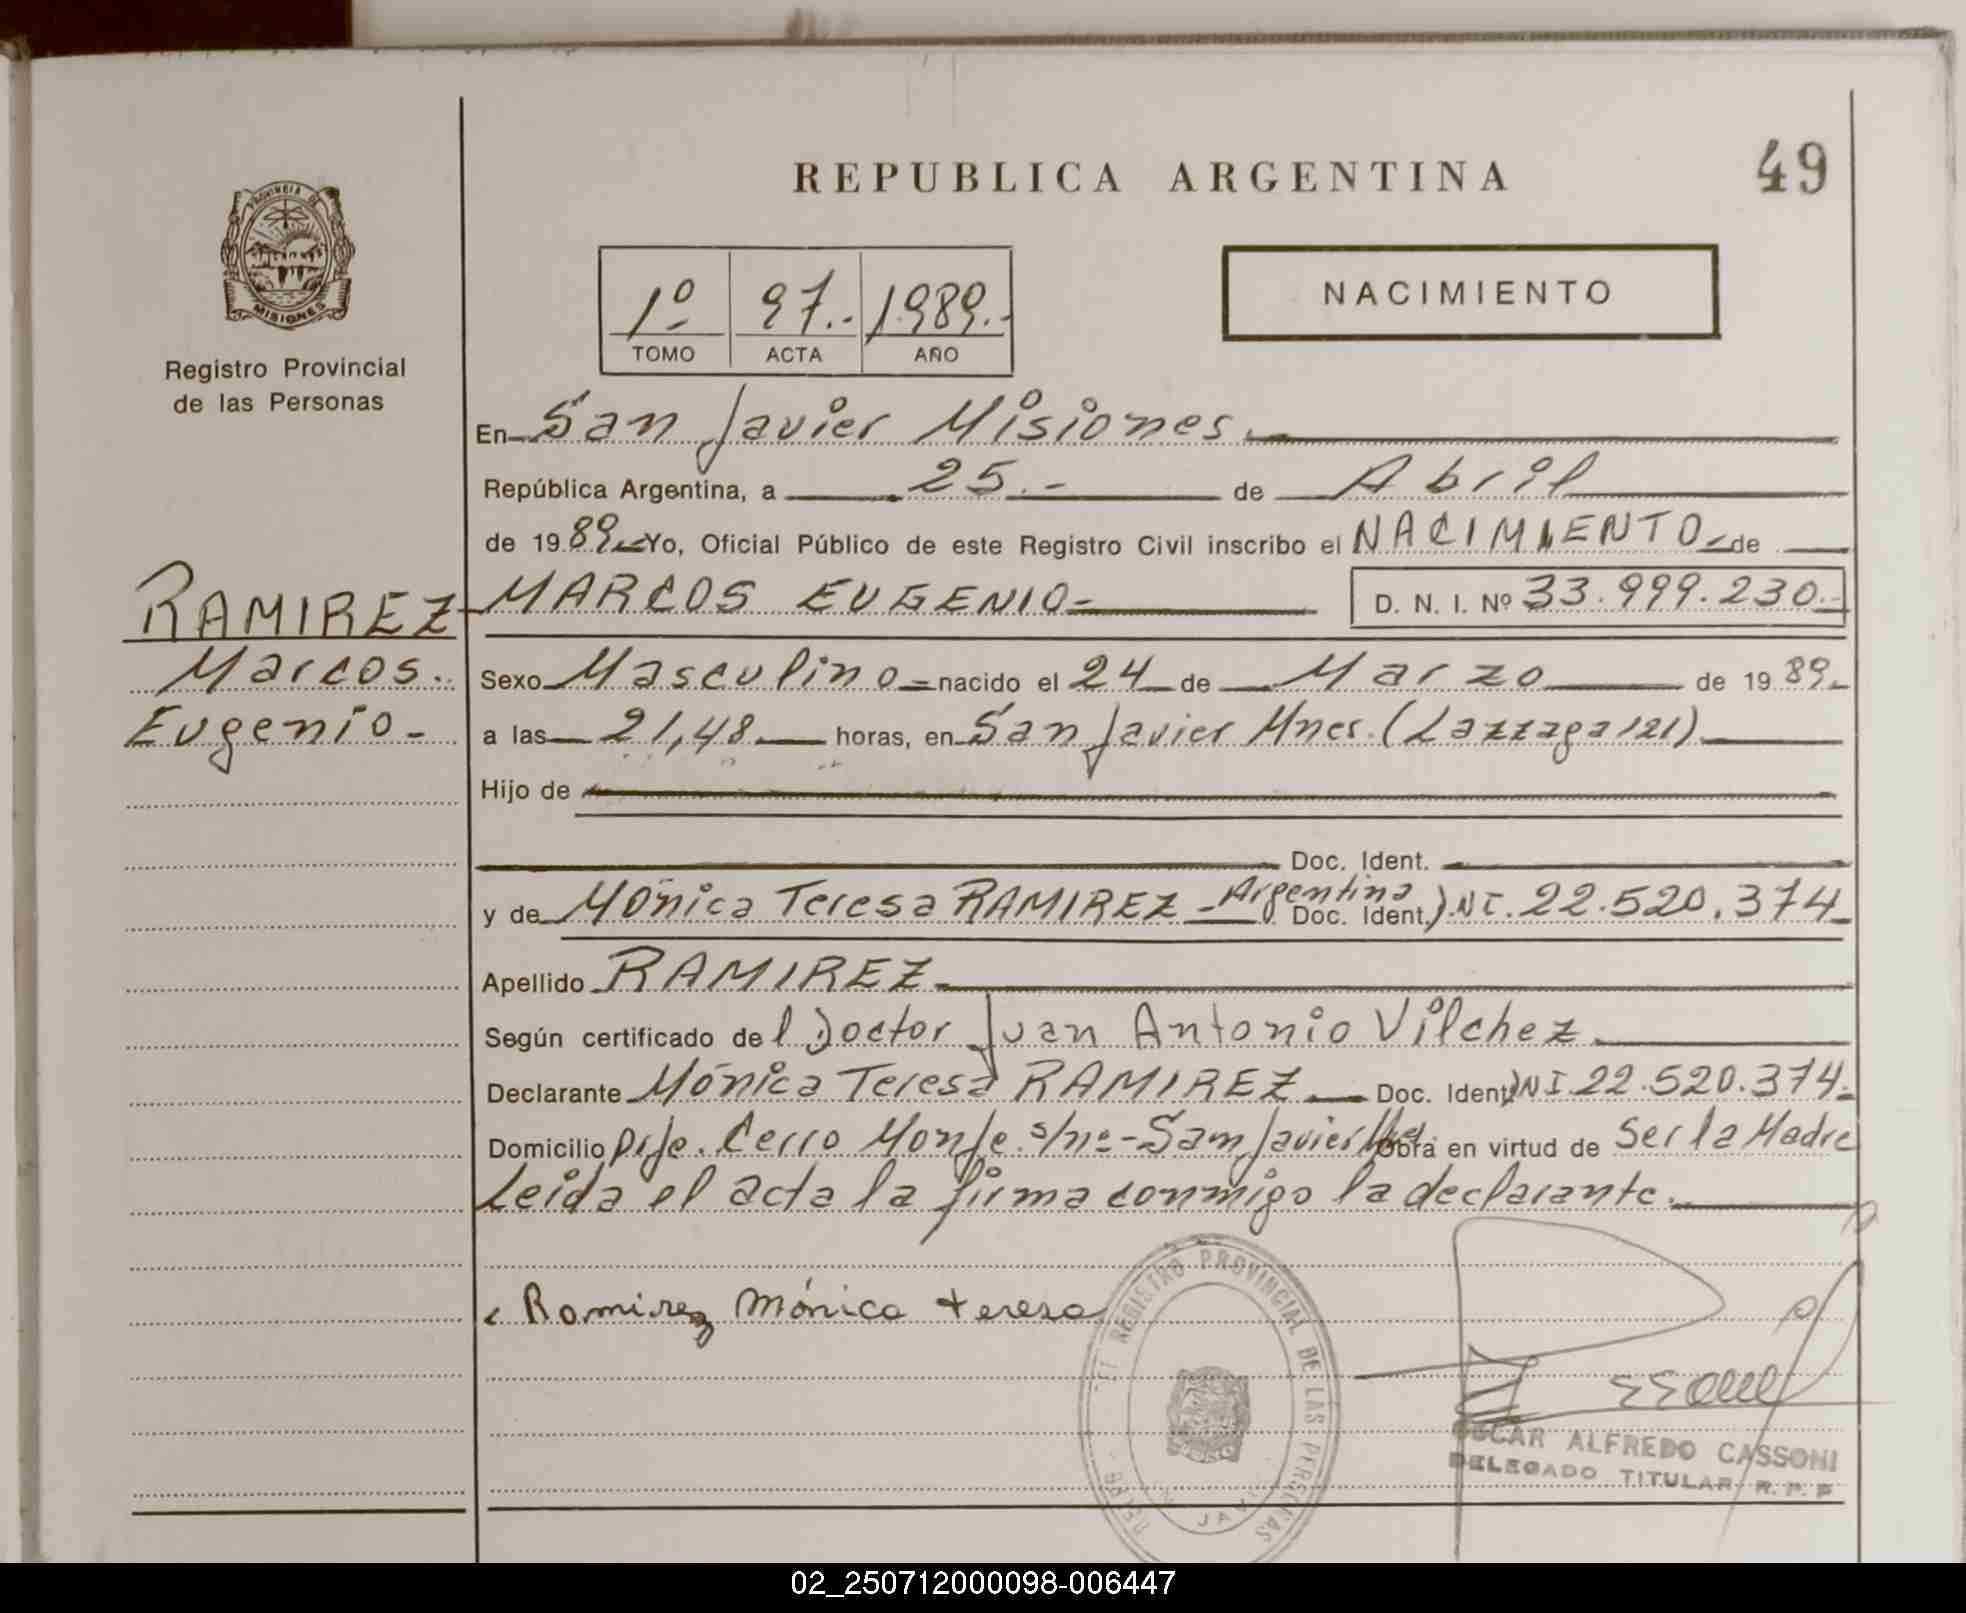 REPUBLICA ARGENTINA
49
PROVINCIA DE
MISIONES
Registro Provincial
de las Personas
1º 97.- 1989.-
TOMO ACTA AÑO
NACIMIENTO
En San Javier Misiones.
República Argentina, a 25.- de Abril
de 1989 Yo, Oficial Público de este Registro Civil inscribo el NACIMIENTO de
RAMIREZ
Marcos.
Eugenio-
MARCOS EUGENIO- D. N. I. Nº 33.999.230.-
Sexo Masculino nacido el 24 de Marzo de 1989
a las 21,48 horas, en San Javier Mnes. (Lazzaga 121)
Hijo de
Doc. Ident.
y de Mónica Teresa RAMIREZ - Argentina Doc. Ident. DNI. 22.520.374
Apellido RAMIREZ
Según certificado del Doctor Juan Antonio Vilchez
Declarante Mónica Teresa RAMIREZ Doc. Ident. DNI 22.520.374.
Domicilio Pje. Cerro Monje s/nº - San Javier Mnes. Obra en virtud de Ser la Madre
Leída el acta la firma conmigo la declarante.
Ramirez Mónica teresa
REGISTRO PROVINCIAL DE LAS PERSONAS
OSCAR ALFREDO CASSONI
DELEGADO TITULAR R. P. P
02_250712000098-006447